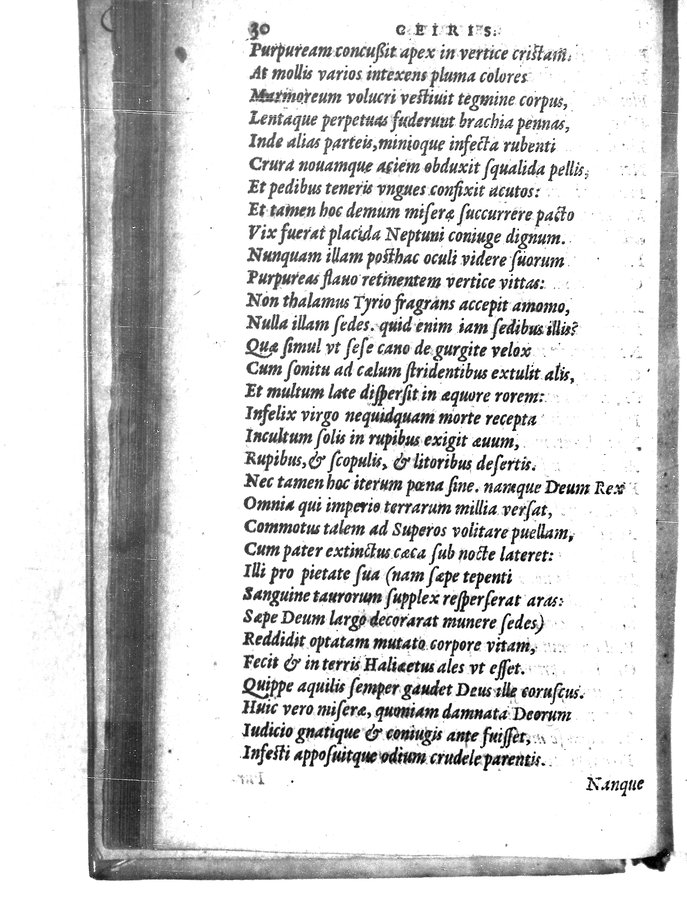 30 CEIRIS.
Purpuream concußit apex in vertice cristam.
At mollis varios intexens pluma colores
Marmoreum volucri vestiuit tegmine corpus,
Lentaque perpetuas fuderunt brachia pennas,
Inde alias parteis, minioque infecta rubenti
Crura nouamque aciem obduxit squalida pellis,
Et pedibus teneris vngues confixit acutos:
Et tamen hoc demum miseræ succurrere pacto
Vix fuerat placida Neptuni coniuge dignum.
Nunquam illam posthac oculi videre suorum
Purpureas flauo retinentem vertice vittas:
Non thalamus Tyrio fragrans accepit amomo,
Nulla illam sedes. quid enim iam sedibus illis?
Quæ simul vt sese cano de gurgite velox
Cum sonitu ad cælum stridentibus extulit alis,
Et multum late dispersit in æquore rorem:
Infelix virgo nequidquam morte recepta
Incultum solis in rupibus exigit æuum,
Rupibus, & scopulis, & litoribus desertis.
Nec tamen hoc iterum pœna sine. namque Deum Rex
Omnia qui imperio terrarum millia versat,
Commotus talem ad Superos volitare puellam,
Cum pater extinctus cæca sub nocte lateret:
Illi pro pietate sua (nam sæpe tepenti
Sanguine taurorum supplex resperserat aras:
Sæpe Deum largo decorarat munere sedes)
Reddidit optatam mutato corpore vitam,
Fecit & in terris Haliæetus ales vt esset.
Quippe aquilis semper gaudet Deus ille coruscus.
Huic vero miseræ, quoniam damnata Deorum
Iudicio gnatique & coniugis ante fuisset,
Infesti apposuitque odium crudele parentis.
Nanque